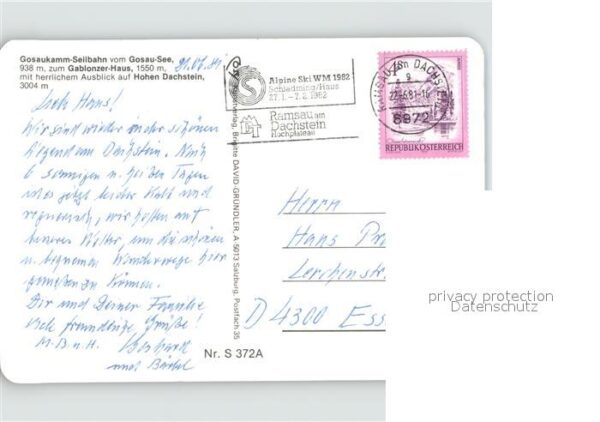 Gosaukamm-Seilbahn vom Gosau-See,
938 m, zum Gablonzer-Haus, 1550 m,
mit herrlichem Ausblick auf Hohen Dachstein,
3004 m
21.06.81
Lieber Hans!
Wir sind wieder in der schönen
Gegend am Dachstein. Nach
6 sonnigen u. heißen Tagen
ist es jetzt leider kalt und
regnerisch, wir hoffen auf
besseres Wetter, um die schönen
u. bequemen Wanderwege hier
genießen zu können.
Dir und Deiner Familie
viele freundliche Grüße!
Gerhard
und Bärbel
Nr. S 372A
Brigitte DAVID-GRÜNDLER, A 5013 Salzburg, Postfach 35
Alpine Ski WM 1982
Schladming/Haus
27.1.-7.2.1982
Ramsau am
Dachstein
Hochplateau
RAMSAU am DACHSTEIN
22.-6.81-16
8972
REPUBLIK ÖSTERREICH
Herrn
Hans
D 4300 Ess
privacy protection
Datenschutz